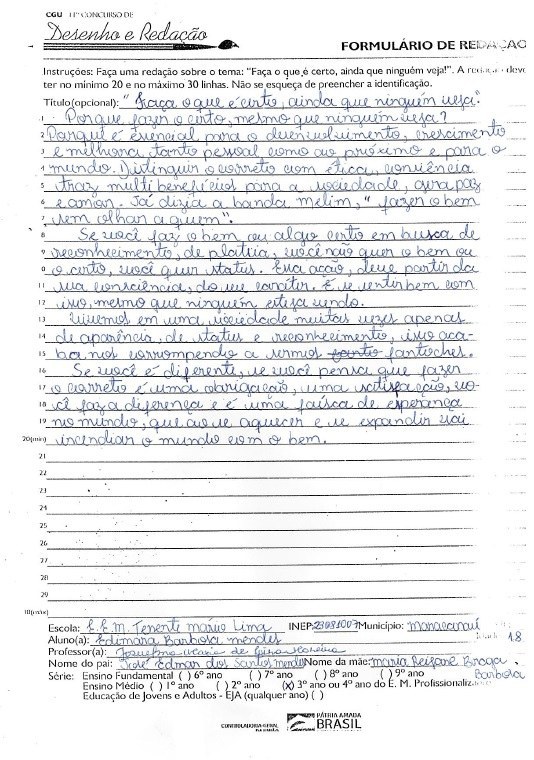 CGU 11º CONCURSO DE
Desenho e Redação
FORMULÁRIO DE REDAÇÃO
Instruções: Faça uma redação sobre o tema: "Faça o que é certo, ainda que ninguém veja!". A redação deve
ter no mínimo 20 e no máximo 30 linhas. Não se esqueça de preencher a identificação.
Título(opcional): "Faça o que é certo, ainda que ninguém veja."
1 Porque fazer o certo, mesmo que ninguém veja?
2 Porque é essencial para o desenvolvimento, crescimento
3 e melhora, tanto pessoal como ao próximo e para o
4 mundo. Distinguir o correto com ética, conviência
5 traz multi benefícios para a sociedade, gera paz
6 e amor. Já dizia a banda melim, " fazer o bem
7 sem olhar a quem".
8 Se você faz o bem ou algo certo em busca de
9 reconhecimento, de platéia, você não quer o bem ou
0 o certo, você quer status. Essa ação, deve partir da
11 sua consciência, do seu caráter. E se sentir bem com
12 isso, mesmo que ninguém esteja vendo.
13 Vivemos em uma sociedade muitas vezes apenas
14 de aparência, de status e reconhecimento, isso aca-
15 ba nos corrompendo a sermos fantoches.
16 Se você é diferente, se você pensa que fazer
17 o correto é uma obrigação, uma satisfação, vo-
18 cê faz a diferença e é uma faísca de esperança
19 no mundo, que ao se aquecer e se expandir vai
20(min) incendiar o mundo com o bem.
21
22
23
24
25
26
27
28
29
30(máx)
Escola: E.E.M. Tenente mário Lima INEP: 23081007 Município: Maracanaú
Aluno(a): Edimara Barbosa mendes 18
Professor(a): Josefina Maria de
Nome do pai: José Edmar dos Santos mendes Nome da mãe: maria Reijane Braga
Barbosa
Série: Ensino Fundamental ( ) 6º ano ( ) 7º ano ( ) 8º ano ( ) 9º ano
Ensino Médio ( ) 1º ano ( ) 2º ano (x) 3º ano ou 4º ano do E. M. Profissionaliz
Educação de Jovens e Adultos - EJA (qualquer ano) ( )
CONTROLADORIA-GERAL
DA UNIÃO
PÁTRIA AMADA
BRASIL